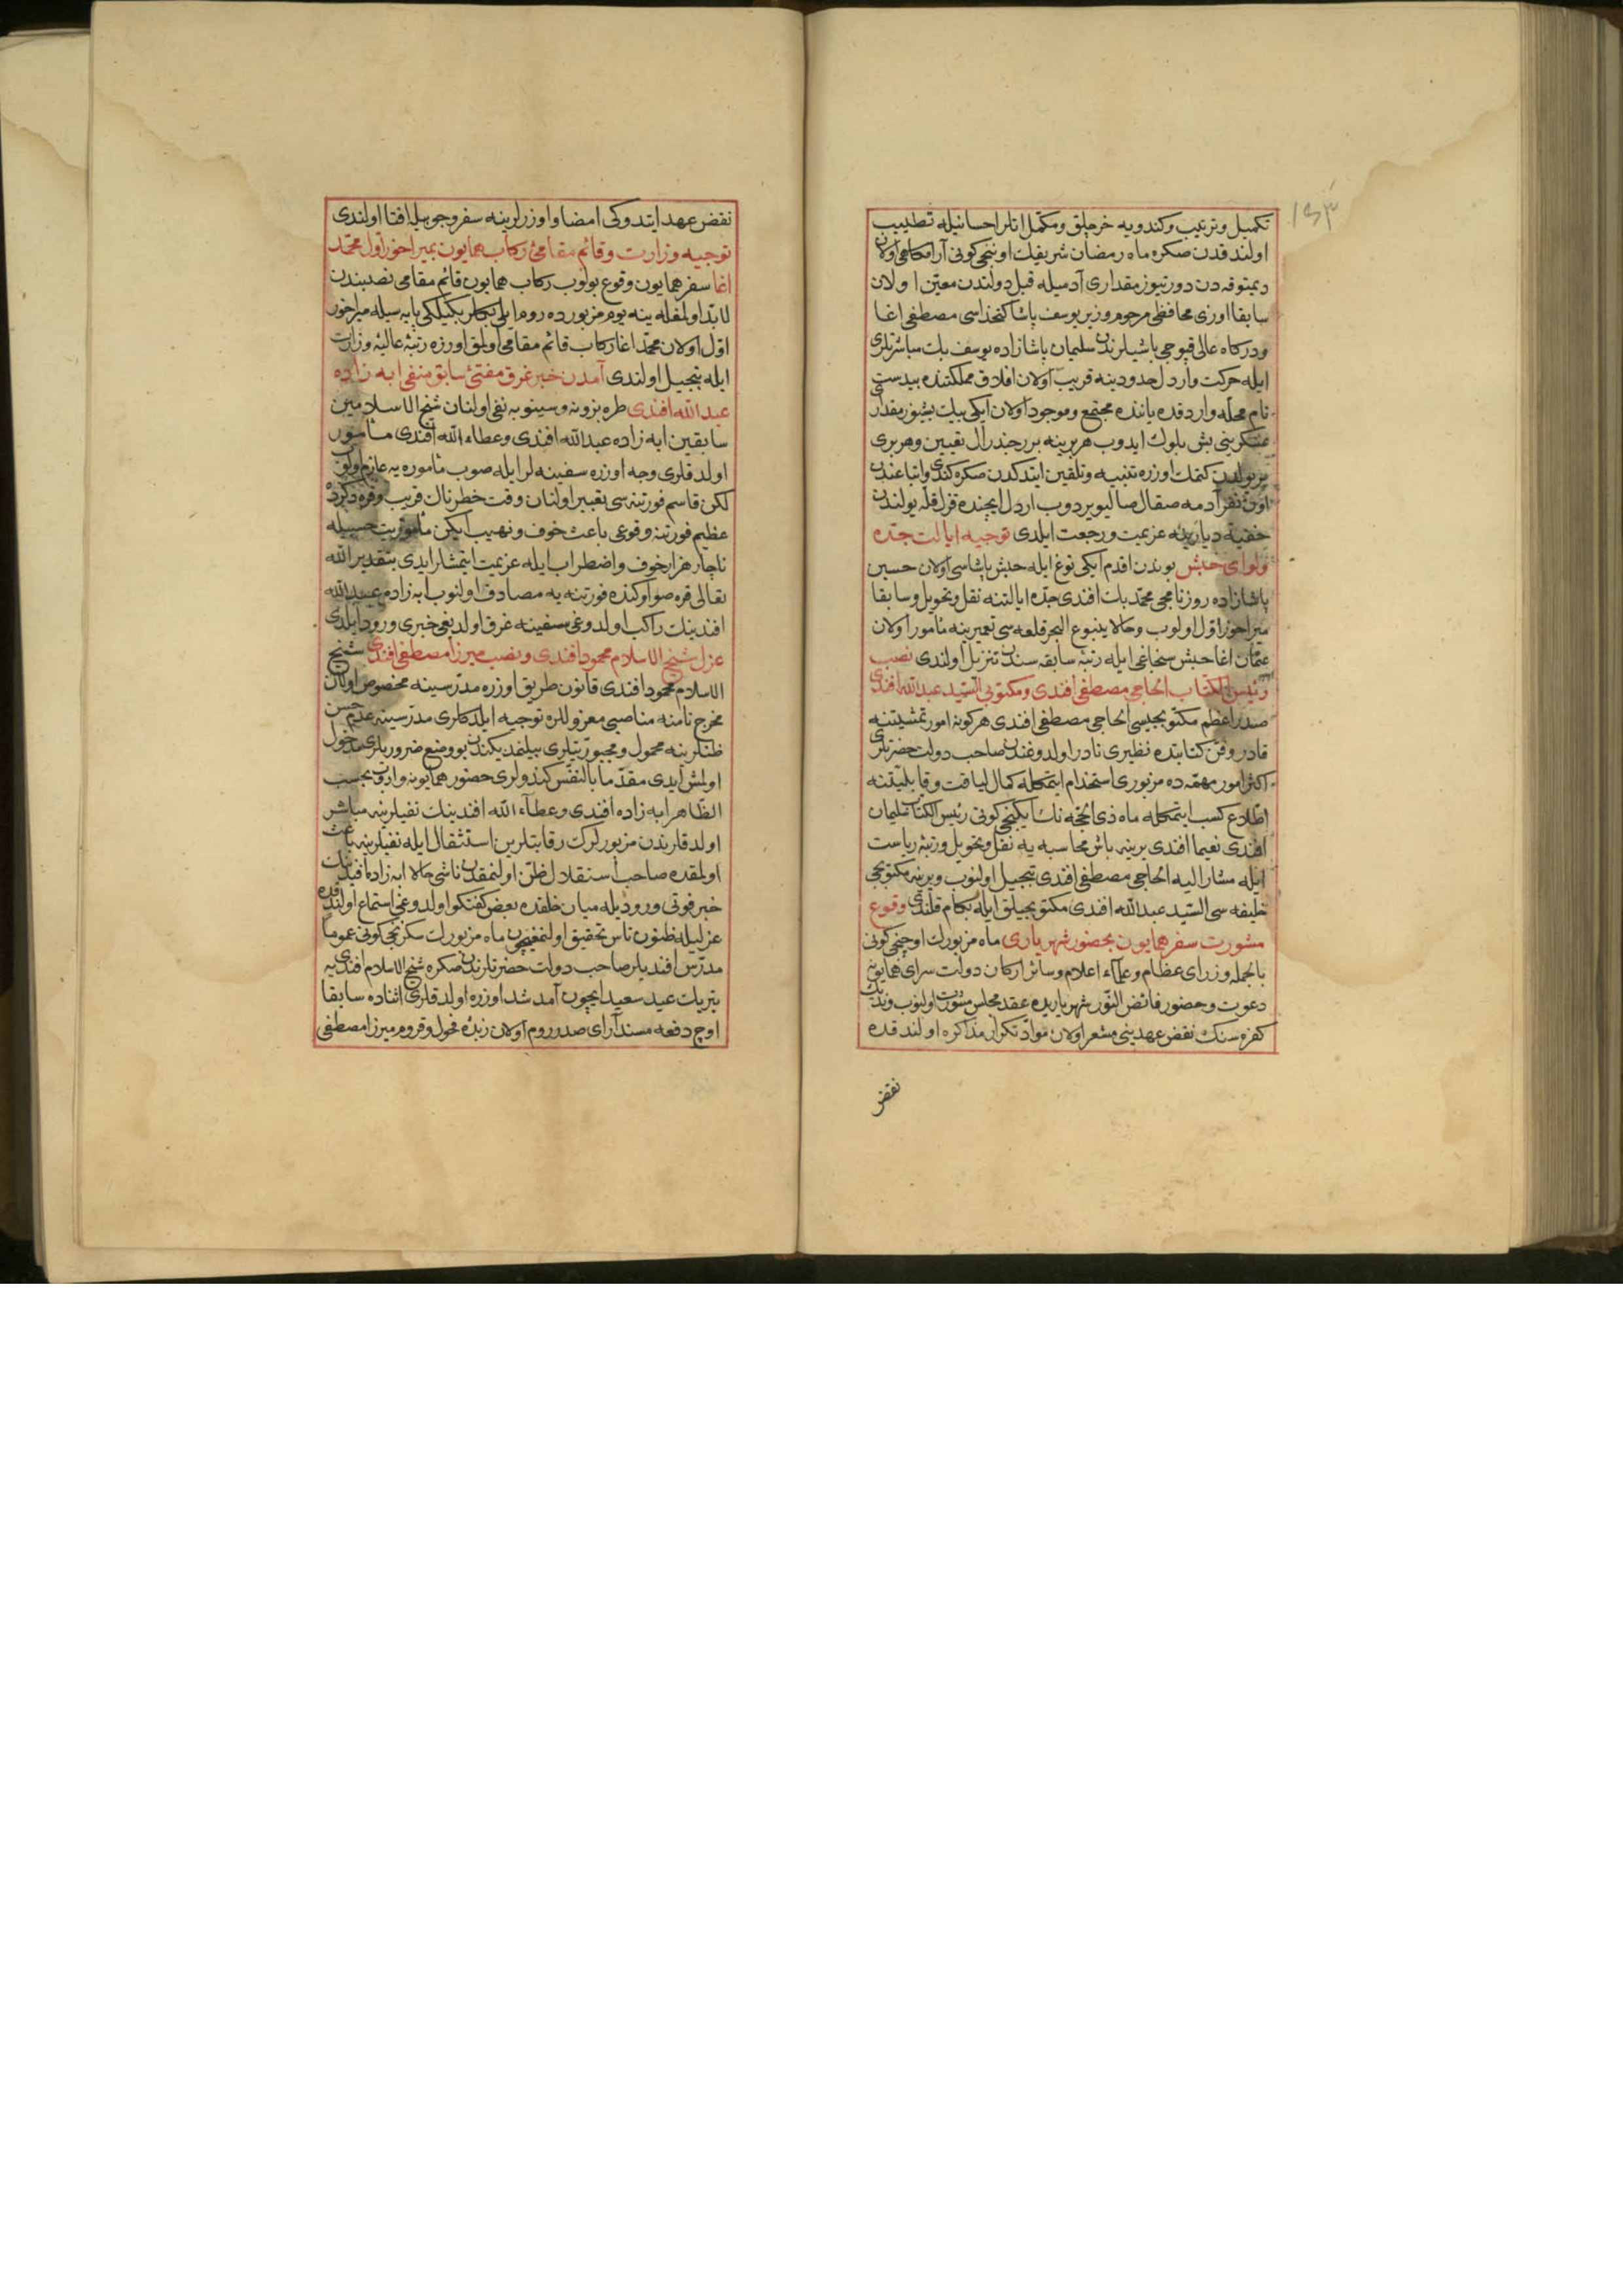 ١٥٣
تكميل وترتيب وكندويه خرجلق ومكمل اتلر احسانيله تطييب
اولندقدن صكره ماه رمضان شريفك اوننجى كونى آرامكاهى اولان
ديمتوقه دن دورتيوز مقدارى آدميله قبل دولتدن معين اولان
سابقا اوزى محافظى مرحوم وزير يوسف پاشا كتخداسى مصطفى اغا
ودركاه عالى قپوجى باشيلرندن سليمان پاشازاده يوسف بك مباشرتلرى
ايله حركت واردل حدودينه قريب اولان افلاق مملكتنده
نام محله واردقده ياننده مجتمع وموجود اولان ايكى بيك بشيوز مقدار
عسكرينى بش بلوك ايدوب هر برينه برر جندرال تعيين وهر برى
بر يولدن كتمك اوزره تنبيه وتلقين ايتدكدن صكره كندو اتباعندن
اون نفر آدمه صقال صاليويردوب اردل ايچنده قزل قله يولندن
خفية ديارينه عزيمت ورجعت ايلدى توجيه ايالت جده
ولواى حبش بوندن اقدم ايكى توغ ايله حبش پاشاسى اولان حسين
پاشازاده روزنامجى محمد بك افندى جده ايالتنه نقل وتحويل وسابقا
ميراخور اول اولوب وحالا ينبوع البحر قلعه سى تعميرينه مأمور اولان
عثمان اغا حبش سنجاغى ايله رتبه سابقه سندن تنزيل اولندى نصب
رئيس الكتاب الحاجى مصطفى افندى ومكتوبى السيد عبدالله افندى
صدر اعظم مكتوبجيسى الحاجى مصطفى افندى هركونه امور تمشيتنه
قادر وفن كتابتده نظيرى نادر اولدوغندن صاحب دولت حضرتلرى
اكثر امور مهمه ده مزبورى استخدام ايتمكله كمال لياقت وقابليتنه
اطلاع كسب ايتمكله ماه ذى الحجه نك ايكنجى كونى رئيس الكتاب سليمان
افندى نعيما افندى يرينه باش محاسبه يه نقل وتحويل ورتبه رياست
ايله مشار اليه الحاجى مصطفى افندى تبجيل اولنوب ويرينه مكتوبجى
خليفه سى السيد عبدالله افندى مكتوبجيلق ايله بكام قلندى وقوع
مشورت سفر همايون بحضور شهريارى ماه مزبورك اوچنجى كونى
بالجمله وزراى عظام وعلماء اعلام وسائر اركان دولت سراى همايونه
دعوت وحضور فائض النور شهرياريده عقد مجلس مشورت اولنوب ونديك
كفره سنك نقض عهدينى مشعر اولان مواد تكرار مذاكره اولندقده
نقض
نقض عهد ايتدوكى امضا واوزرلرينه سفر وجوبيله افتا اولندى
توجيه وزارت وقائم مقامئ ركاب همايون بميراخور اول محمد
اغا سفر همايون وقوع بولوب ركاب همايون قائم مقامى نصبندن
لابد اولمغله ينه يوم مزبورده روم ايلى بكلربكيلكى پايه سيله ميراخور
اول اولان محمد اغا ركاب قائم مقامى اولمق اوزره رتبه عاليه وزارت
ايله تبجيل اولندى آمدن خبر غرق مفتئ سابق منفى ابه زاده
عبدالله افندى طره بزونه وسينوبه نفى اولنان شيخ الاسلامين
سابقين ابه زاده عبدالله افندى وعطاء الله افندى مأمور
اولدقلرى وجه اوزره سفينه لر ايله صوب مأموره يه عازم اولوب
لكن قاسم فورتنه سى تعبير اولنان وقت خطرناك قريب وقره دكزده
عظيم فورتنه وقوعى باعث خوف ونهيب ايكن مأموريت حسبيله
ناچار هزار خوف واضطراب ايله عزيمت ايتمشلر ايدى بتقدير الله
تعالى قره صو اوكنده فورتنه يه مصادف اولنوب ابه زاده عبدالله
افندينك راكب اولدوغى سفينه غرق اولديغى خبرى ورود ايلدى
عزل شيخ الاسلام محمود افندى ونصب ميرزا مصطفى افندى شيخ
الاسلام محمود افندى قانون طريق اوزره مدرسينه مخصوص اولان
مخرج نامنه مناصبى معزوللره توجيه ايلدكلرى مدرسينه عدم حسن
ظنلرينه محمول ومجبوريتلرى بيلنمديكندن بو وضع ضروريلرى مدخول
اولمش ايدى مقدما بالنفس كندولرى حضور همايونه واروب بحسب
الظاهر ابه زاده افندى وعطاء الله افندينك نفيلرينه مباشر
اولدقلرندن مزبورلرك رقابتلرين استثقال ايله نفيلرينه باعث
اولمقده صاحب استقلال ظن اولنمقدن ناشى حالا ابه زاده افندينك
خبر فوتى وروديله ميان خلقده بعض كفتكو اولدوغى استماع اولندقده
عزليله ظنون ناس تحقيق اولنمغيچون ماه مزبورك سكزنجى كونى عموما
مدرس افنديلر صاحب دولت حضرتلرندن صكره شيخ الاسلام افندى يه
تبريك عيد سعيد ايچون آمد شد اوزره اولدقلرى اثناده سابقا
اوچ دفعه مسند آراى صدر روم اولان زبده فحول وقروم ميرزا مصطفى